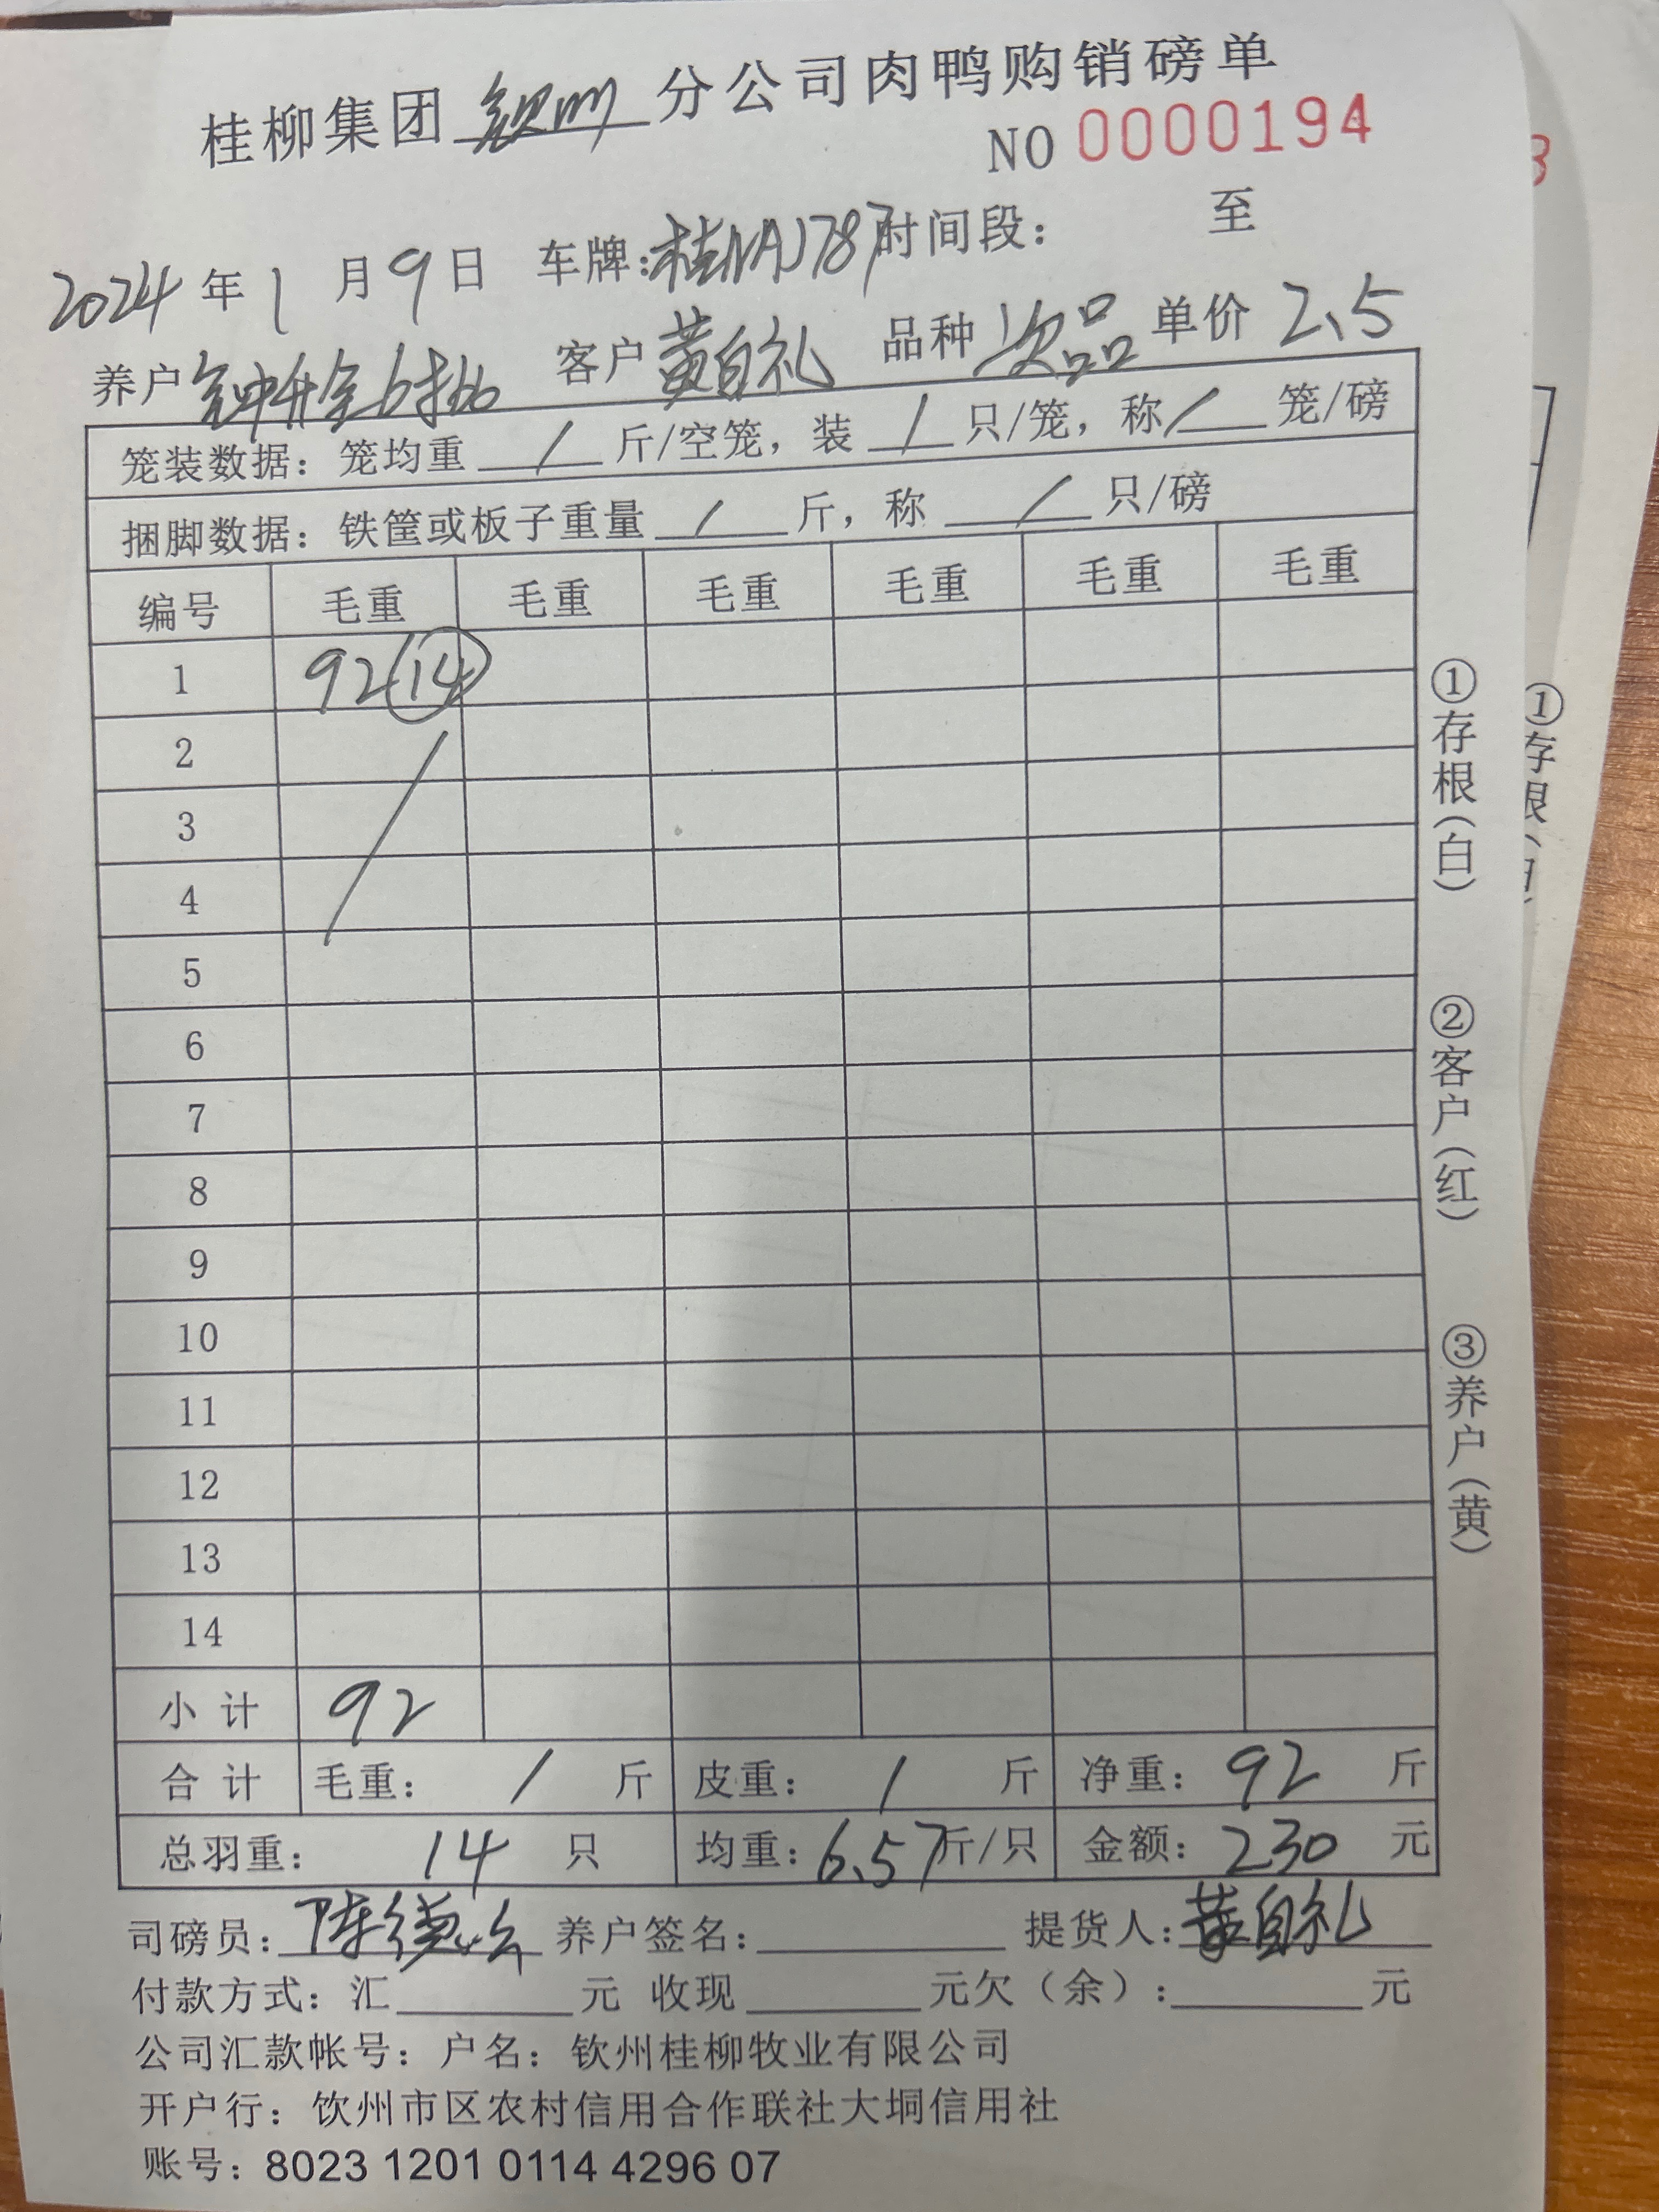 桂柳集团 钦州 分公司肉鸭购销磅单
NO 0000194
2024 年 1 月 9 日 车牌: 桂NAJ787 时间段: 至
养户 钟升全6批 客户 黄自礼 品种 次品 单价 2、5
笼装数据: 笼均重 / 斤/空笼, 装 / 只/笼, 称 / 笼/磅
捆脚数据: 铁筐或板子重量 / 斤, 称 / 只/磅
编号 毛重 毛重 毛重 毛重 毛重 毛重
1 92 (14)
2
3
4
5
6
7
8
9
10
11
12
13
14
小计 92
合计 毛重: / 斤 皮重: / 斤 净重: 92 斤
总羽重: 14 只 均重: 6.57 斤/只 金额: 230 元
司磅员: 陈 养户签名: 提货人: 黄自礼
付款方式: 汇 元 收现 元欠(余): 元
公司汇款帐号: 户名: 钦州桂柳牧业有限公司
开户行: 饮州市区农村信用合作联社大垌信用社
账号: 8023 1201 0114 4296 07
①存根(白)
②客户(红)
③养户(黄)
3
①存根(白)